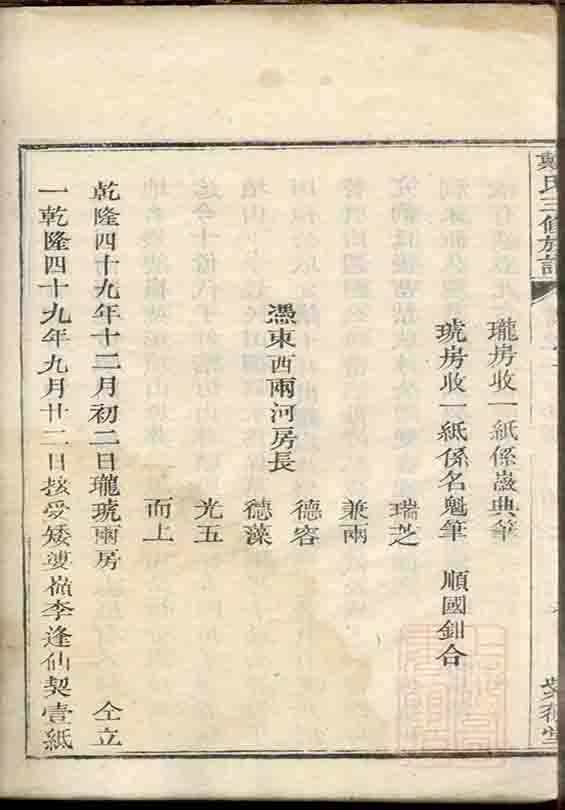 戴氏三修族譜
瓏房收一紙係嶽典筆
琥房收一紙係名魁筆 順國鉗合
瑞芝
兼兩
憑東西兩河房長 德容
德藻
光五
而上
乾隆四十九年十二月初二日瓏琥兩房 仝立
一乾隆四十九年九月廿二日接受矮婆嶺李逢仙契壹紙